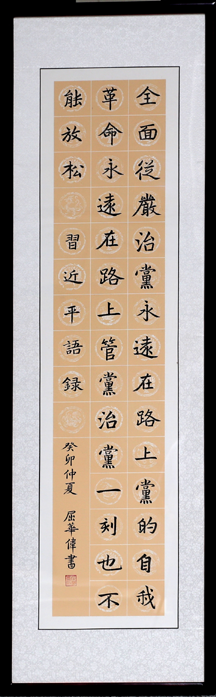 全面從嚴治黨永遠在路上黨的自我
革命永遠在路上管黨治黨一刻也不
能放松 習近平語録
癸卯仲夏 屈華偉書